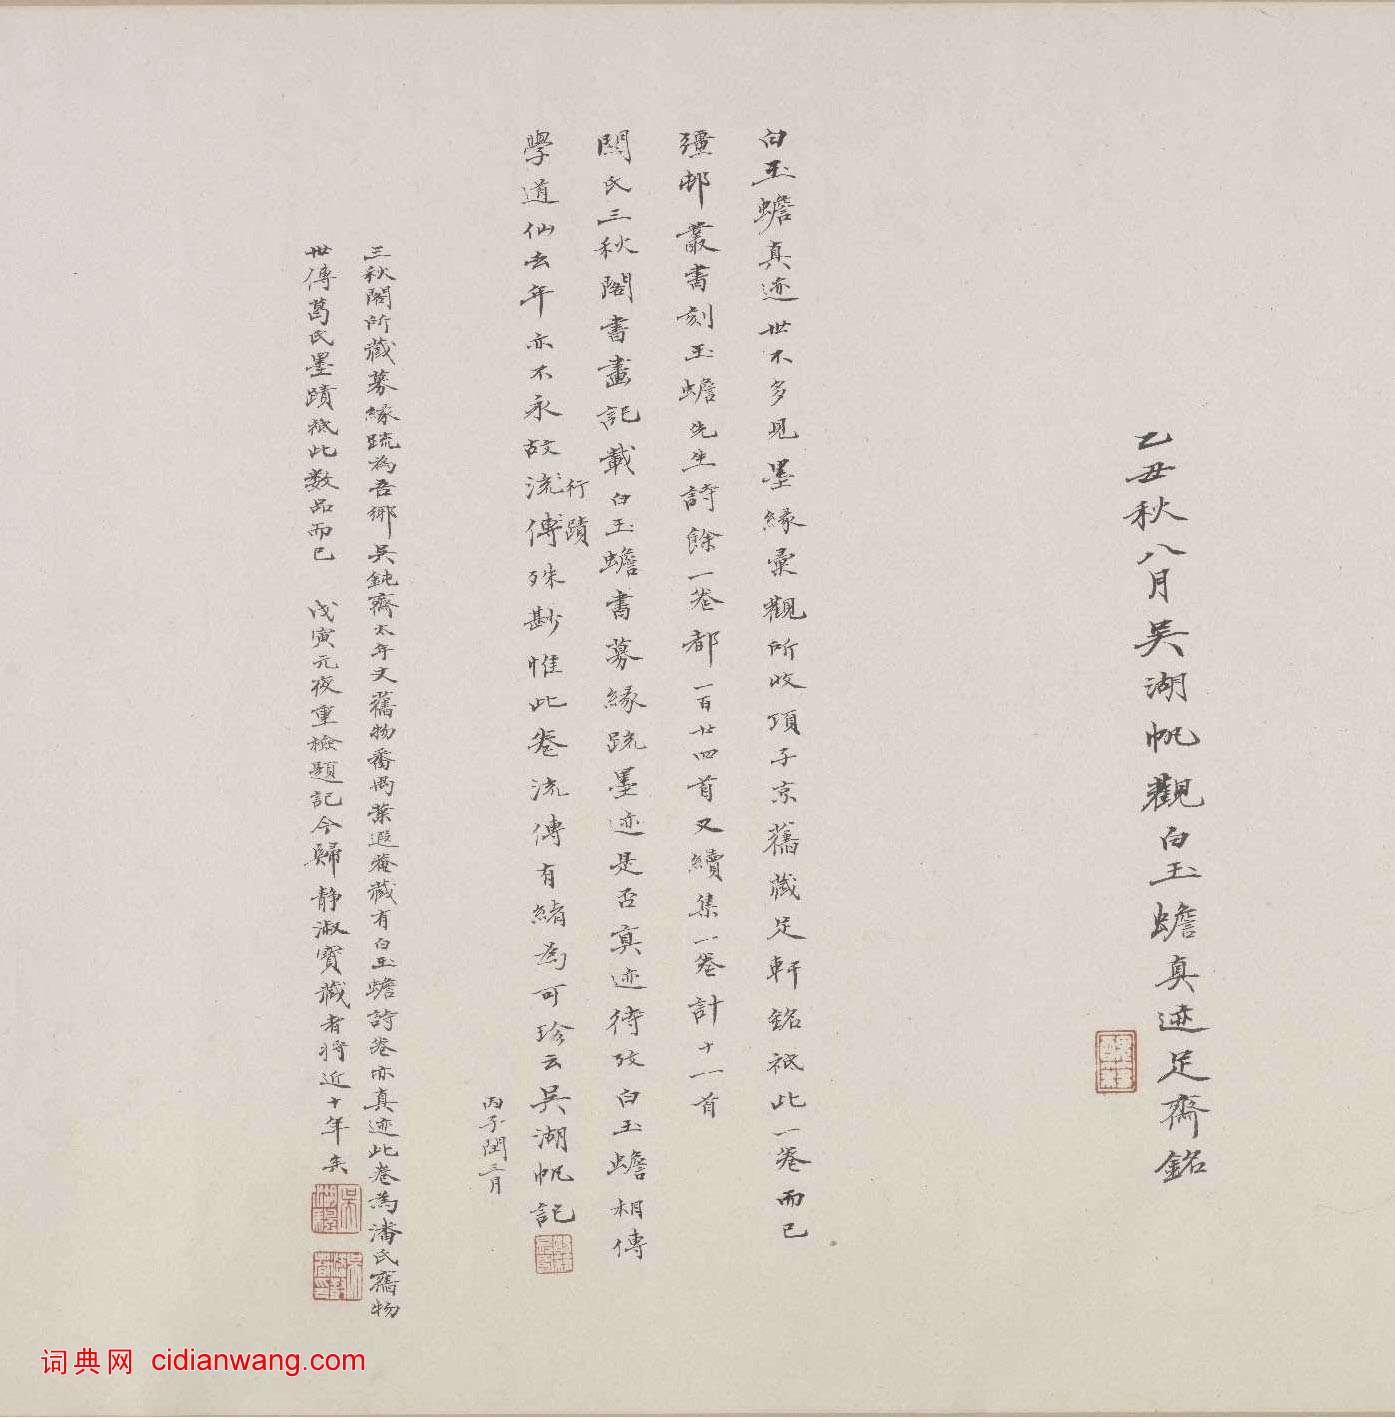 乙丑秋八月吴湖帆觀白玉蟾真迹足齋銘
白玉蟾真迹世不多見墨緣彙觀所收項子京舊藏足軒銘祇此一卷而已
彊邨叢書刻玉蟾先生詩餘一卷都一百廿四首又續集一卷計十一首
關氏三秋閣書畫記載白玉蟾書募緣疏墨迹是否真迹待攷白玉蟾相傳
學道仙去年亦不永故流傳殊尠惟此卷流傳有緒為可珍云吴湖帆記
行蹟
丙子閏三月
三秋閣所藏募緣疏為吾鄉吴鈍齋太年丈舊物番禺葉遐菴藏有白玉蟾詩卷亦真迹此卷為潘氏舊物
世傳葛氏墨蹟祇此数品而已 戊寅元夜重檢題記今歸静淑寶藏者將近十年矣
词典网 cidianwang.com